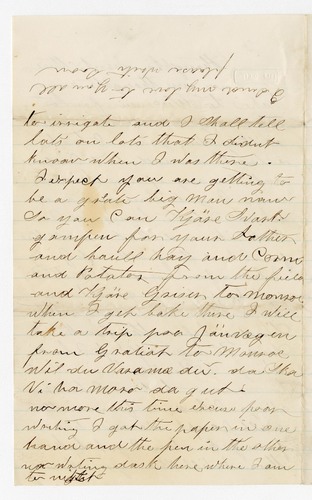 I send my love to you all
please write soon
to irrigate and I shall tell
lots on lots that I didnt
know when I was there.
I expect you are getting to
be a grate big man now
So you can Kjöre Svart
gampen for your Father
and haull hay and Corn
and Potatos from the field
and Kjöre Grisen to Monroe
when I get bake ture I will
take a trip paa Jänvegen
from Gratiot to Monroe
Vil du Varame du. da ska
Vi ha moro da gut.
no more this time excuse poor
writing I got the paper in one
hand and the pen in the other
no writing dask here where I am
to